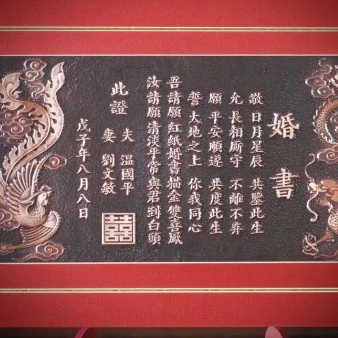 婚書
敬日月星辰 共鑒此生
允長相廝守 不離不弃
願平安順遂 共度此生
誓大地之上 你我同心
吾請願 紅紙婚書描金雙喜鳳
汝請願 清淡平常與君到白頭
此證
夫 溫國平
妻 劉文敏
戊子年八月八日
囍